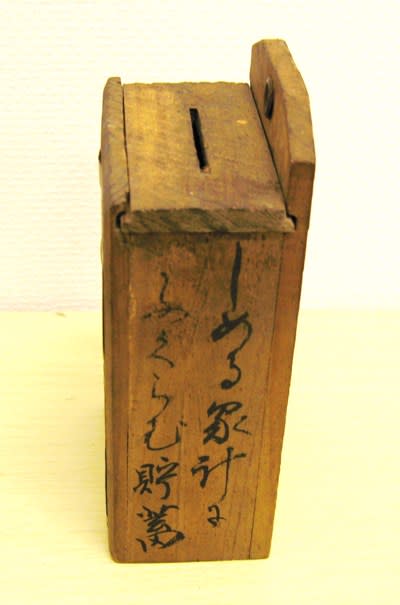 しめる家計に
ふくらむ貯蓄